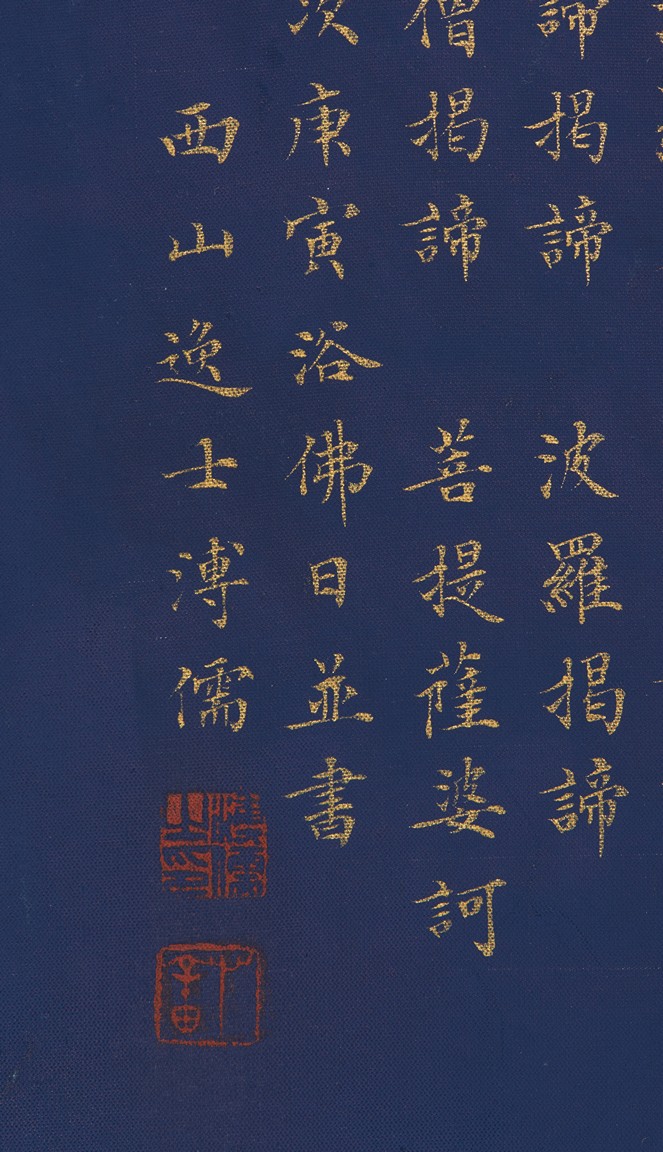 諦揭諦 波羅揭諦
僧揭諦 菩提薩婆訶
次庚寅浴佛日並書
西山逸士溥儒